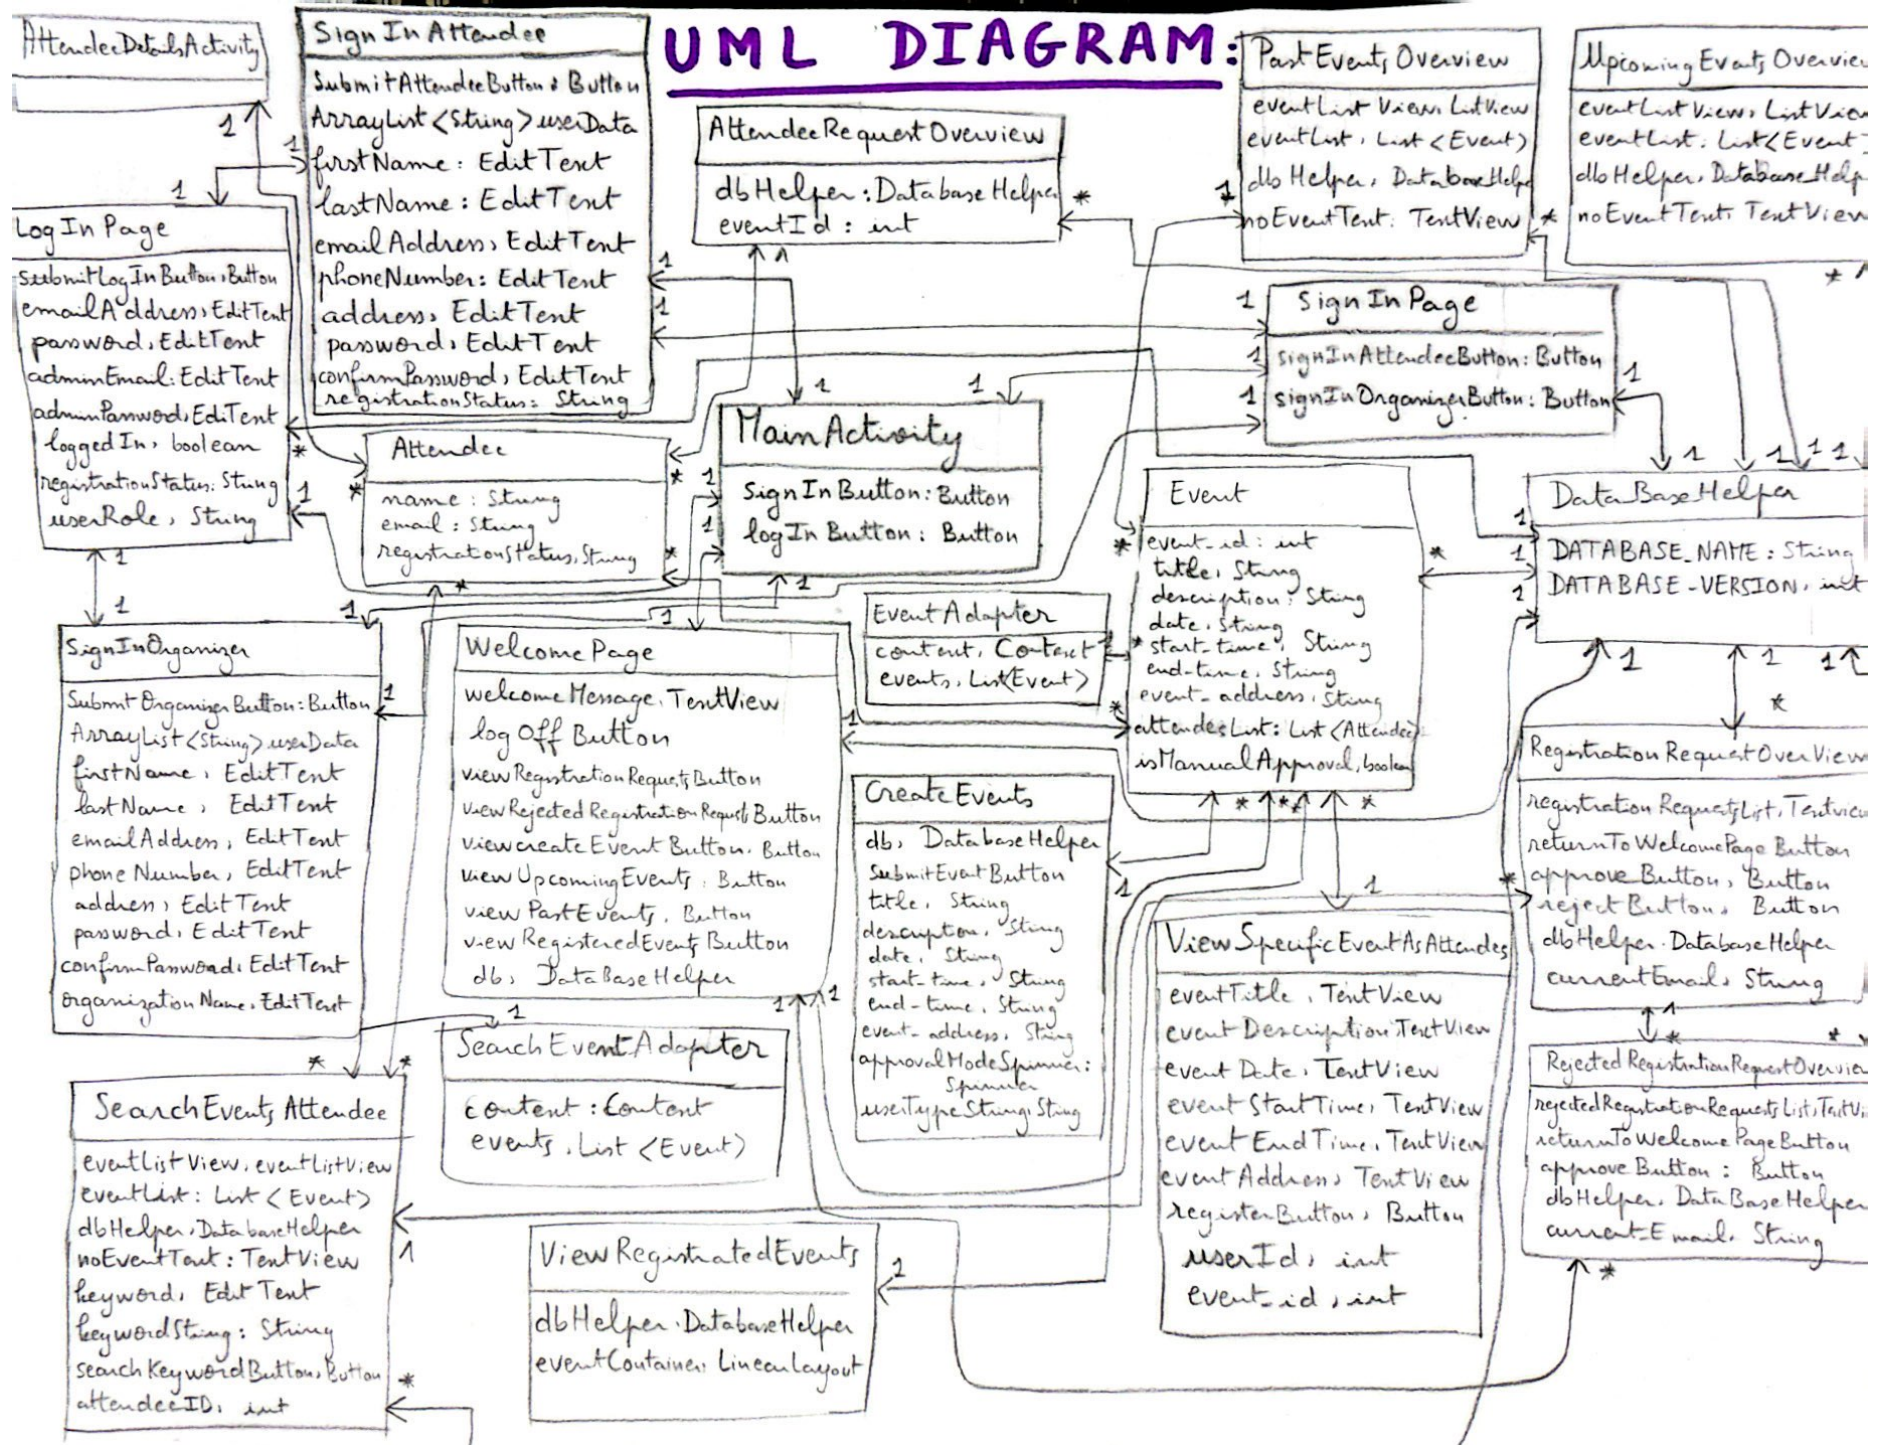 UML DIAGRAM:
AttendeeDetailsActivity
SignInAttendee
SubmitAttendeeButton: Button
ArrayList<String> userData
firstName: EditText
lastName: EditText
emailAddress: EditText
phoneNumber: EditText
address: EditText
password: EditText
confirmPassword: EditText
registrationStatus: String
AttendeeRequestOverview
dbHelper: DatabaseHelper
eventId: int
PastEventsOverview
eventListView: ListView
eventList: List<Event>
dbHelper: DatabaseHelpe
noEventText: TextView
Upcoming Events Overview
eventListView: ListView
eventList: List<Event
dbHelper: DatabaseHelp
noEventText: TextView
LogInPage
submitLogInButton: Button
emailAddress: EditText
password: EditText
adminEmail: EditText
adminPassword: EdiText
loggedIn: boolean
registrationStatus: String
userRole: String
SignInPage
signInAttendeeButton: Button
signInOrganizerButton: Button
Attendee
name: String
email: String
registrationStatus: String
MainActivity
SignInButton: Button
logInButton: Button
Event
event_id: int
title: String
description: String
date: String
start_time: String
end-time: String
event_address: String
attendeeList: List<Attendee>
isManualApproval: boolean
DataBaseHelper
DATABASE_NAME: String
DATABASE-VERSION: int
EventAdapter
context: Context
events: List<Event>
SignInOrganizer
Submit Organizer Button: Button
ArrayList<String> userData
firstName: EditText
lastName: EditText
emailAddress: EditText
phone Number: EditText
address: EditText
password: EditText
confirmPassword: EditText
organization Name: EditText
WelcomePage
welcome Message: TextView
log Off Button
view Registration Requests Button
view Rejected Registration Request Button
view create Event Button: Button
view Upcoming Events: Button
view Past Events: Button
view Registered Events Button
db: DataBaseHelper
CreateEvents
db: DatabaseHelper
SubmitEventButton
title: String
description: String
date: String
start-time: String
end-time: String
event-address: String
approvalModeSpinner:
Spinner
userTypeString: String
RegistrationRequestOverView
registration RequestsList: Textview
returnToWelcomePage Button
approve Button: Button
reject Button: Button
dbHelper: DatabaseHelper
currentEmail: String
ViewSpecificEventAsAttendee
eventTitle: TextView
event Description: TextView
event Date: TextView
event StartTime: TextView
event EndTime: TextView
event Address: TextView
registerButton: Button
userId: int
event_id: int
SearchEventAdapter
context: Context
events: List<Event>
SearchEventsAttendee
eventListView: eventListView
eventList: List<Event>
dbHelper: DatabaseHelper
noEventText: TextView
keyword: EditText
keywordString: String
searchKeywordButton: Button
attendeeID: int
Rejected Registration Request Overview
rejectedRegistrationRequests List: TextVi
returnToWelcomePageButton
approve Button: Button
dbHelper: DataBaseHelper
current-Email: String
ViewRegistratedEvents
dbHelper: DatabaseHelper
eventContainer: LinearLayout